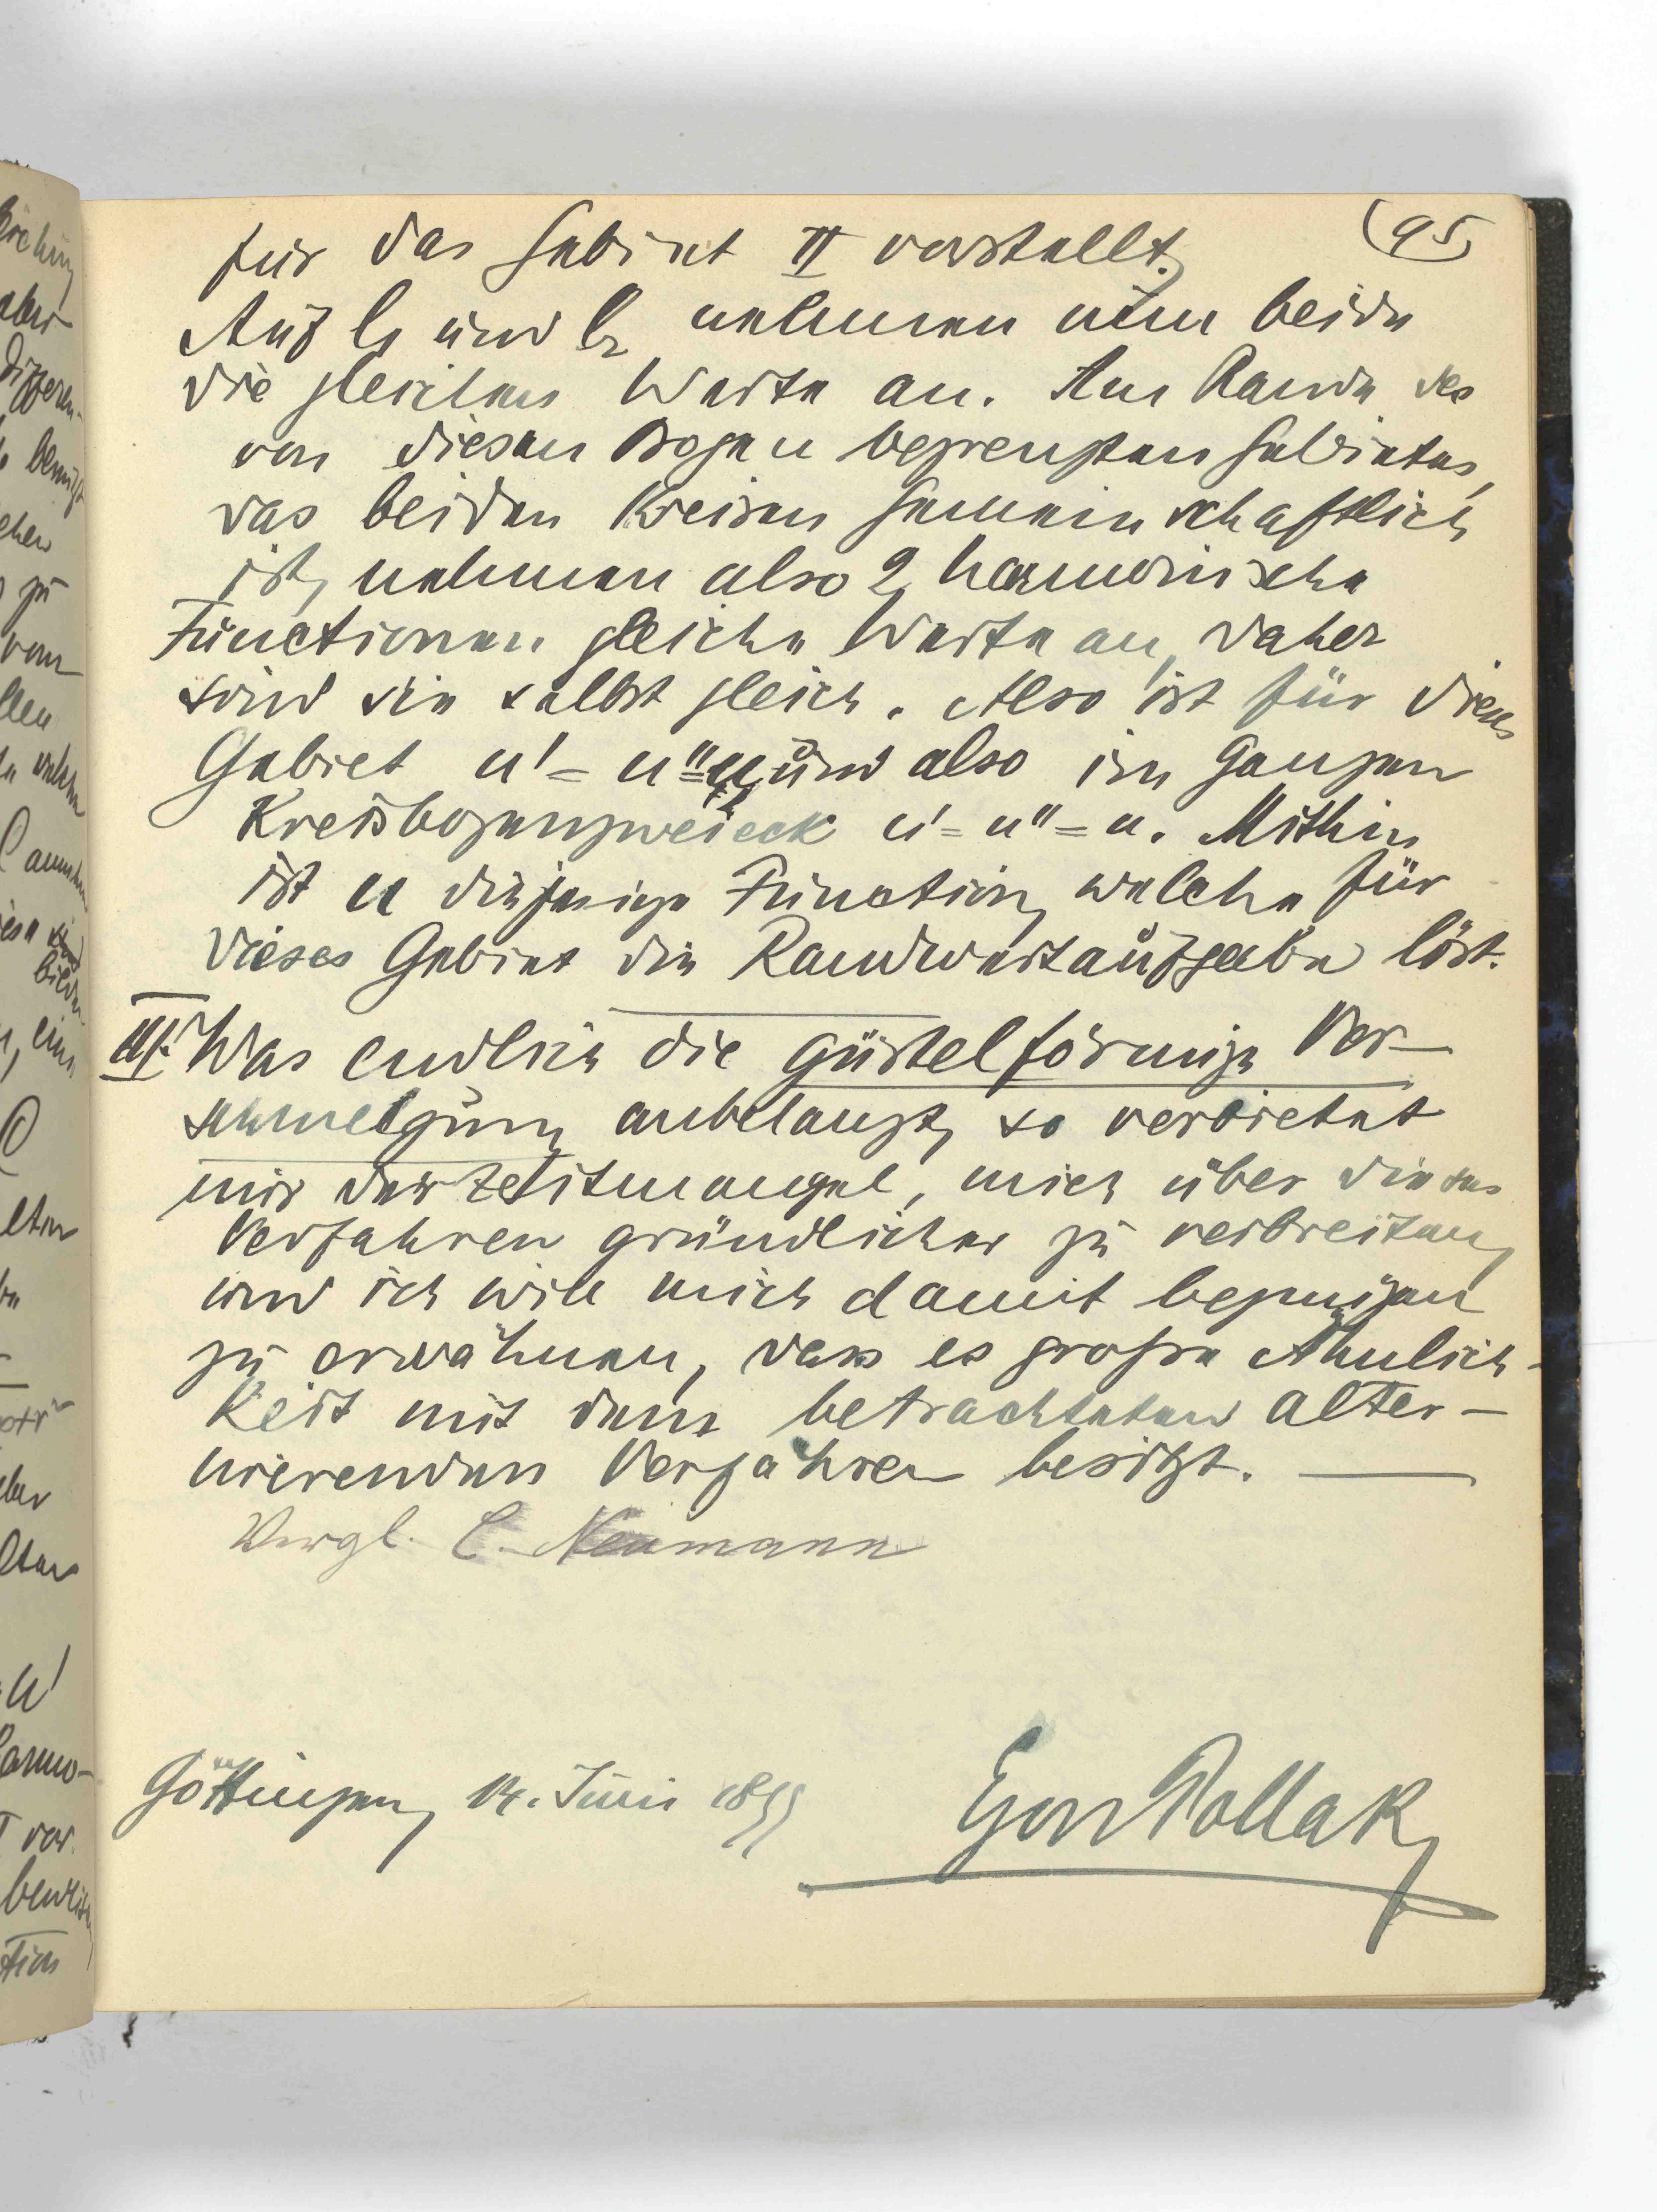 (95)
für das Gebiet II vorstellt.
Auf l₁ und l₂ nehmen nun beide
die gleichen Werte an. Am Rande des
von diesen Bogen begrenzten Gebietes,
das beiden Kreisen gemeinschaftlich
ist, nehmen also 2 harmonische
Functionen gleiche Werte an, daher
sind sie selbst gleich. Also ist für dieses
Gebiet u' = u" = u und also im ganzen
Kreisbogenzweieck u' = u" = u. Mithin
ist u diejenige Function, welche für
dieses Gebiet die Randwertaufgabe löst.
III. Was endlich die gürtelförmige Ver-
schmelzung anbelangt, so verbietet
mir der Zeitmangel, mich über dieses
Verfahren gründlicher zu verbreiten,
und ich will mich damit begnügen
zu erwähnen, dass es große Ähnlich-
keit mit dem betrachteten alter-
nierenden Verfahren besitzt. —
Vergl. C. Neumann
Göttingen, 14. Juni 1899
Egon Pollak